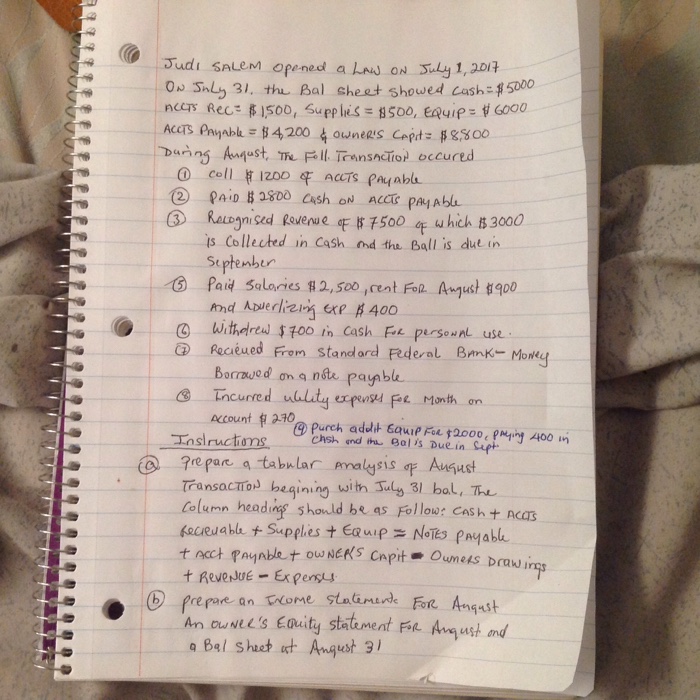 Judi SALEM opened a LAW ON July 1, 2017
ON July 31, the Bal sheet showed Cash = $5000
ACCTS Rec = $1,500, Supplies = $500, EQuip = $6000
ACCTS Payable = $4,200 & owner's Capit = $8,800
During August, The Foll. Transaction occured
① coll $1200 of ACCTS PAYAble
② PAID $2800 Cash ON ACCTS PAYAble
③ Recognised Revenue of $7500 of which $3000
is Collected in Cash and the Ball is due in
September
⑤ Paid Salaries $2,500, rent For August $900
And Adverlizing exp $400
⑥ Withdrew $700 in cash For personal use.
⑦ Recieued From Standard Federal BANK - Money
Borrowed on a note payable
⑧ Incurred utility expenses For Month on
Account $270
④ purch addit EQuip For $2000, PAying 400 in
Cash and the Bal is Due in Sept
Instructions
ⓐ Prepare a tabular analysis of August
Transaction begining with July 31 bal, The
Column headings should be as Follow: Cash + ACCTS
Recievable + Supplies + EQuip = NoTES PAYable
+ Acct PAYAble + OWNER'S Capit - Owners Drawings
+ REVENUE - Expenses.
ⓑ prepare an Income statements For August
An owner's Equity statement For August and
a Bal Sheet at August 31